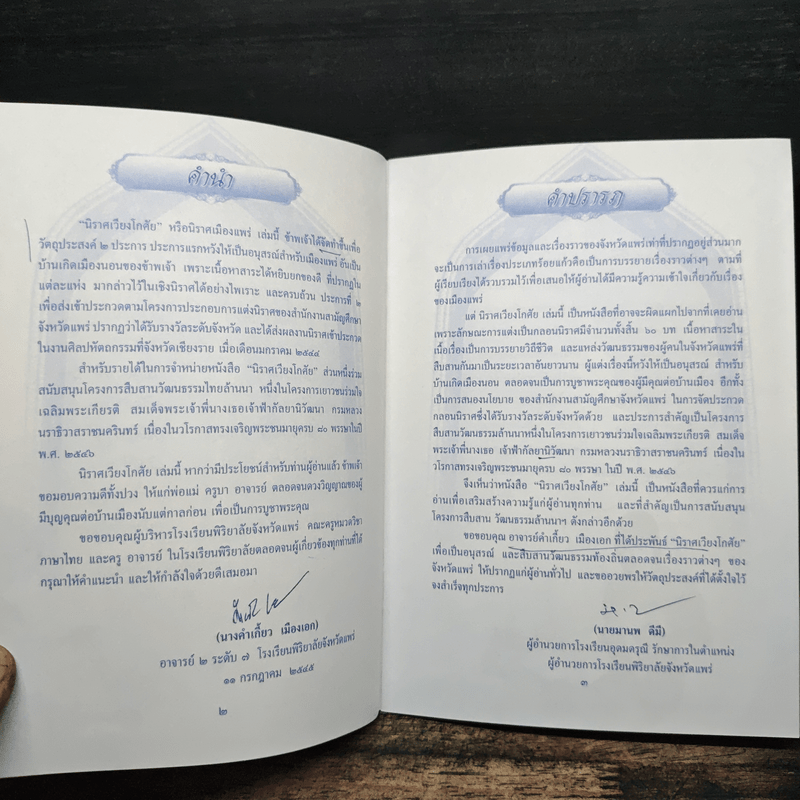 คำนำ
"นิราศเวียงโกศัย" หรือนิราศเมืองแพร่ เล่มนี้ ข้าพเจ้าได้จัดทำขึ้นเพื่อ
วัตถุประสงค์ ๒ ประการ ประการแรกหวังให้เป็นอนุสรณ์สำหรับเมืองแพร่ อันเป็น
บ้านเกิดเมืองนอนของข้าพเจ้า เพราะเนื้อหาสาระได้หยิบยกของดี ที่ปรากฏใน
แต่ละแห่ง มากล่าวไว้ในเชิงนิราศได้อย่างไพเราะ และครบถ้วน ประการที่ ๒
เพื่อส่งเข้าประกวดตามโครงการประกอบการแต่งนิราศของสำนักงานสามัญศึกษา
จังหวัดแพร่ ปรากฏว่าได้รับรางวัลระดับจังหวัด และได้ส่งผลงานนิราศเข้าประกวด
ในงานศิลปหัตถกรรมที่จังหวัดเชียงราย เมื่อเดือนมกราคม ๒๕๔๔
สำหรับรายได้ในการจำหน่ายหนังสือ "นิราศเวียงโกศัย" ส่วนหนึ่งร่วม
สนับสนุนโครงการสืบสานวัฒนธรรมไทยล้านนา หนึ่งในโครงการเยาวชนร่วมใจ
เฉลิมพระเกียรติ สมเด็จพระเจ้าพี่นางเธอเจ้าฟ้ากัลยานิวัฒนา กรมหลวง
นราธิวาสราชนครินทร์ เนื่องในวโรกาสทรงเจริญพระชนมายุครบ ๘๐ พรรษาในปี
พ.ศ. ๒๕๔๖
นิราศเวียงโกศัย เล่มนี้ หากว่ามีประโยชน์สำหรับท่านผู้อ่านแล้ว ข้าพเจ้า
ขอมอบความดีทั้งปวง ให้แก่พ่อแม่ ครูบา อาจารย์ ตลอดจนดวงวิญญาณของผู้
มีบุญคุณต่อบ้านเมืองนับแต่กาลก่อน เพื่อเป็นการบูชาพระคุณ
ขอขอบคุณผู้บริหารโรงเรียนพิริยาลัยจังหวัดแพร่ คณะครูหมวดวิชา
ภาษาไทย และครู อาจารย์ ในโรงเรียนพิริยาลัยตลอดจนผู้เกี่ยวข้องทุกท่านที่ได้
กรุณาให้คำแนะนำ และให้กำลังใจด้วยดีเสมอมา
(นางคำเกี้ยว เมืองเอก)
อาจารย์ ๒ ระดับ ๗ โรงเรียนพิริยาลัยจังหวัดแพร่
๑๑ กรกฎาคม ๒๕๔๕
๒
คำปรารภ
การเผยแพร่ข้อมูลและเรื่องราวของจังหวัดแพร่เท่าที่ปรากฏอยู่ส่วนมาก
จะเป็นการเล่าเรื่องประเภทร้อยแก้วคือเป็นการบรรยายเรื่องราวต่างๆ ตามที่
ผู้เรียบเรียงได้รวบรวมไว้เพื่อเสนอให้ผู้อ่านได้มีความรู้ความเข้าใจเกี่ยวกับเรื่อง
ของเมืองแพร่
แต่ นิราศเวียงโกศัย เล่มนี้ เป็นหนังสือที่อาจจะผิดแผกไปจากที่เคยอ่าน
เพราะลักษณะการแต่งเป็นกลอนนิราศมีจำนวนทั้งสิ้น ๖๐ บท เนื้อหาสาระใน
เนื้อเรื่องเป็นการบรรยายวิถีชีวิต และแหล่งวัฒนธรรมของผู้คนในจังหวัดแพร่ที่
สืบสานกันมาเป็นระยะเวลาอันยาวนาน ผู้แต่งเรื่องนี้หวังให้เป็นอนุสรณ์ สำหรับ
บ้านเกิดเมืองนอน ตลอดจนเป็นการบูชาพระคุณของผู้มีคุณต่อบ้านเมือง อีกทั้ง
เป็นการสนองนโยบาย ของสำนักงานสามัญศึกษาจังหวัดแพร่ ในการจัดประกวด
กลอนนิราศซึ่งได้รับรางวัลระดับจังหวัดด้วย และประการสำคัญเป็นโครงการ
สืบสานวัฒนธรรมล้านนาหนึ่งในโครงการเยาวชนร่วมใจเฉลิมพระเกียรติ สมเด็จ
พระเจ้าพี่นางเธอ เจ้าฟ้ากัลยานิวัฒนา กรมหลวงนราธิวาสราชนครินทร์ เนื่องใน
วโรกาสทรงเจริญพระชนมายุครบ ๘๐ พรรษา ในปี พ.ศ. ๒๕๔๖
จึงเห็นว่าหนังสือ "นิราศเวียงโกศัย" เล่มนี้ เป็นหนังสือที่ควรแก่การ
อ่านเพื่อเสริมสร้างความรู้แก่ผู้อ่านทุกท่าน และที่สำคัญเป็นการสนับสนุน
โครงการสืบสาน วัฒนธรรมล้านนาฯ ดังกล่าวอีกด้วย
ขอขอบคุณ อาจารย์คำเกี้ยว เมืองเอก ที่ได้ประพันธ์ "นิราศเวียงโกศัย"
เพื่อเป็นอนุสรณ์ และสืบสานวัฒนธรรมท้องถิ่นตลอดจนเรื่องราวต่างๆ ของ
จังหวัดแพร่ ให้ปรากฏแก่ผู้อ่านทั่วไป และขออวยพรให้วัตถุประสงค์ที่ได้ตั้งใจไว้
จงสำเร็จทุกประการ
(นายมานพ ดีมี)
ผู้อำนวยการโรงเรียนอุดมดรุณี รักษาการในตำแหน่ง
ผู้อำนวยการโรงเรียนพิริยาลัยจังหวัดแพร่
๓